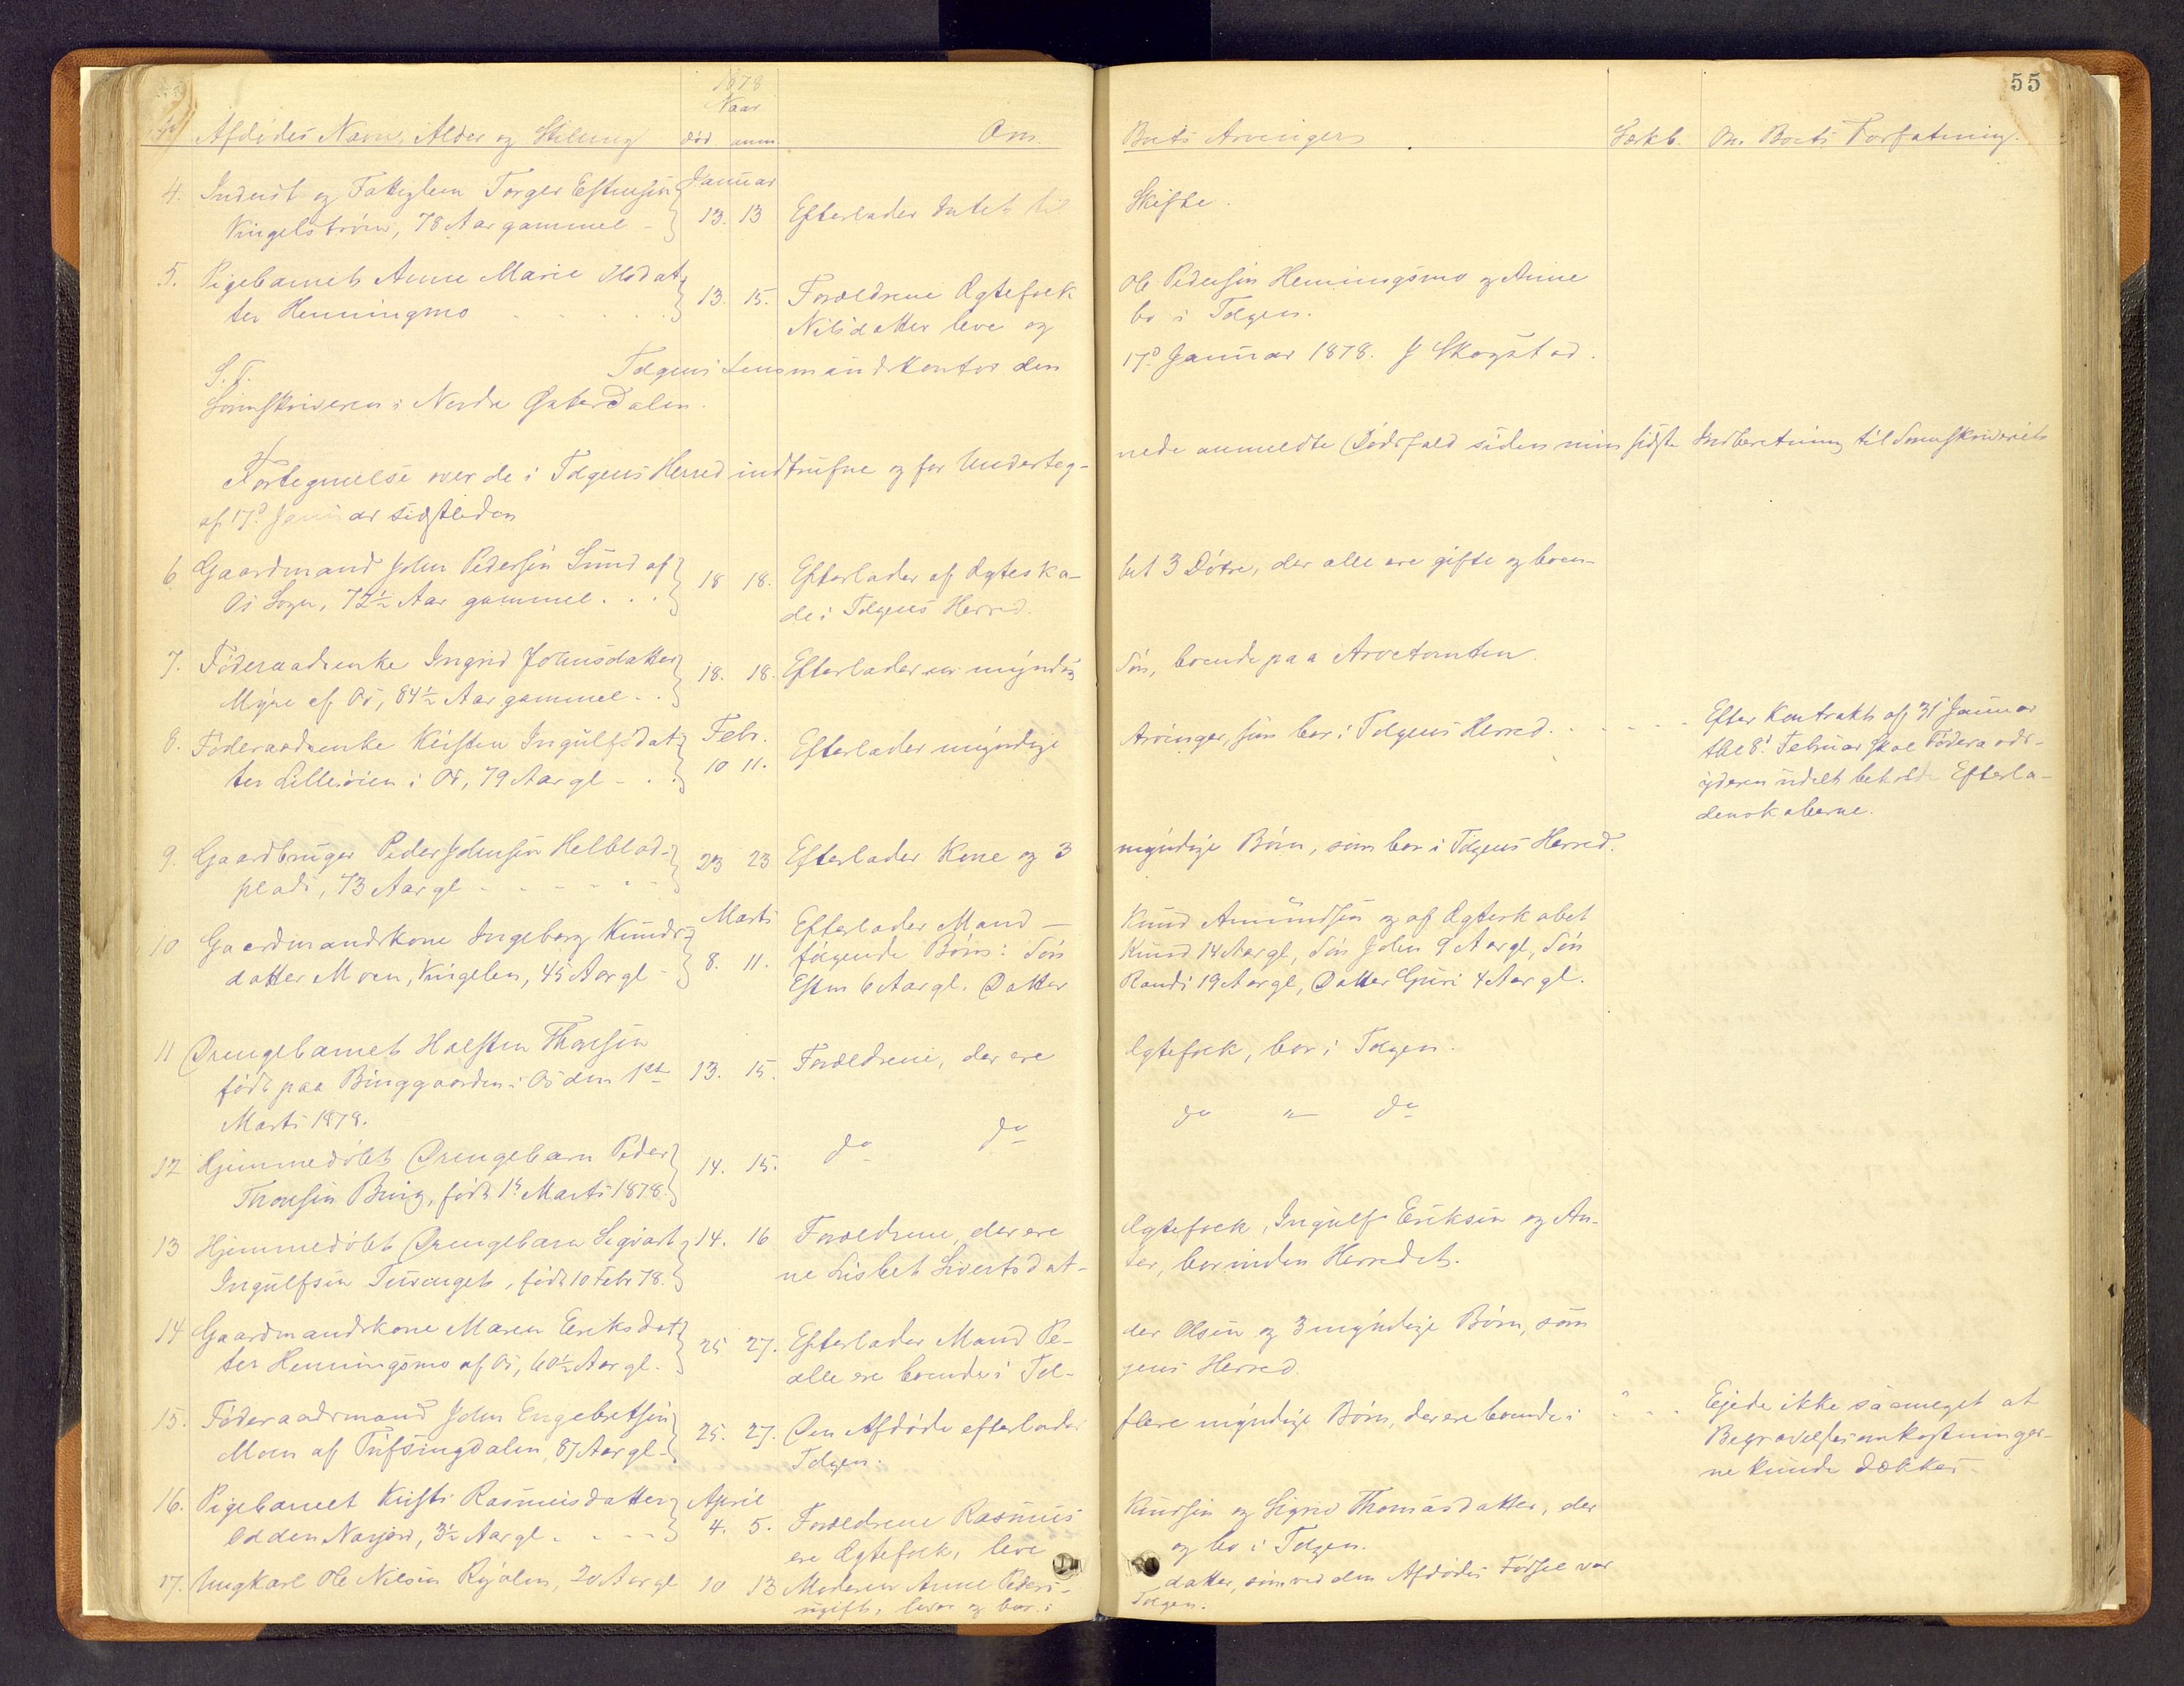 55
1878
Naar
No Afdødes Navn, Alder og Stilling død anm. Om Boets Arvinger Særkb. Om Boets Forfatning.
Januar
4. Inderst og Fattiglem Torger Estensen 13. 13 Efterlader Intet til Skifte.
Vingelstrøen, 78 Aar gammel
5. Pigebarnet Anne Marie Olsdat- 13. 15. Forældrene Ægtefolk Ole Pedersen Henningsmo og Anne
ter Henningmo Nilsdatter leve og bo i Tolgen.
S.T. Tolgens Lensmandskontor den 17d Januar 1878. J Skogstad.
Sorenskriveren i Nordre Østerdalen.
Fortegnelse over de i Tolgens Herred indtrufne og for Underteg- nede anmeldte Dødsfald siden min sidste Indberetning til Sorenskriveriet
af 17d Januar sidstleden
6 Gaardmand John Pedersen Sund af 18 18. Efterlader af Ægteska- bet 3 Døtre, der alle ere gifte og boen-
Os Sogn, 72½ Aar gammel de i Tolgens Herred.
7. Føderaadsenke Ingrid Johnsdatter 18. 18. Efterlader en myndig Søn, boende paa Arvetomten.
Myre af Os, 84½ Aar gammel
8. Føderaadsenke Kirsten Ingulfsdat- Febr. Efterlader myndige Arvinger, som bor i Tolgens Herred. Efter Kontrakt af 31 Januar
ter Lillerøien i Os, 79 Aar gl 10 11. tbl 8. Februar skal Føderaads-
yderen udelt beholde Efterla-
denskaberne.
9. Gaardbruger Peder Johnsen Helblad- 23 23 Efterlader Kone og 3 myndige Børn, som bor i Tolgens Herred.
plads, 73 Aar gl
Marts
10 Gaardmandskone Ingeborg Knuds- 8. 11. Efterlader Mand Knud Amundsen og af Ægteskabet
datter Moen, Vingelen, 45 Aar gl følgende Børn: Søn Knud 14 Aar gl, Søn John 9 Aar gl, Søn
Esten 6 Aar gl. Datter Randi 19 Aar gl, Datter Guri 4 Aar gl.
11 Drengebarnet Halsten Thoresen 13. 15. Forældrene, der ere Ægtefolk, bor i Tolgen.
født paa Binggaarden i Os den 1st
Marts 1878.
12 Hjemmedøbt Drengebarn Peder 14. 15. do do do " do
Thoresen Bing, født 1st Marts 1878.
13 Hjemmedøbt Drengebarn Sigvart 14. 16 Forældrene, der ere Ægtefolk, Ingulf Eriksen og An-
Ingulfsen Tuvenget, født 10 Febr 78. ne Lisbet Sivertsdat- ter, bor inden Herredet.
14 Gaardmandskone Maren Eriksdat- 25 27. Efterlader Mand Pe- der Olsen og 3 myndige Børn, som
ter Henningsmo af Os, 60½ Aar gl. alle ere boende i Tol- gens Herred
15. Føderaadsmand John Engebretsen 25. 27. Den Afdøde efterlader flere myndige Børn, der ere boende i Ejede ikke saameget at
Moen af Tufsingdalen, 87 Aar gl Tolgen. Begravelsesomkostninger-
ne kunde dækkes
16. Pigebarnet Kirsti Rasmusdatter April
Odden Narjord, 3½ Aar gl 4. 5. Forældrene Rasmus Knudsen og Sigrid Thomasdatter, der
ere Ægtefolk, leve og bo i Tolgen.
17. Ungkarl Ole Nilsen Ryøien, 20 Aar gl 10 13 Moderen Anne Peders- datter, som ved den Afdødes Fødsel var
ugift, lever og bor i Tolgen.